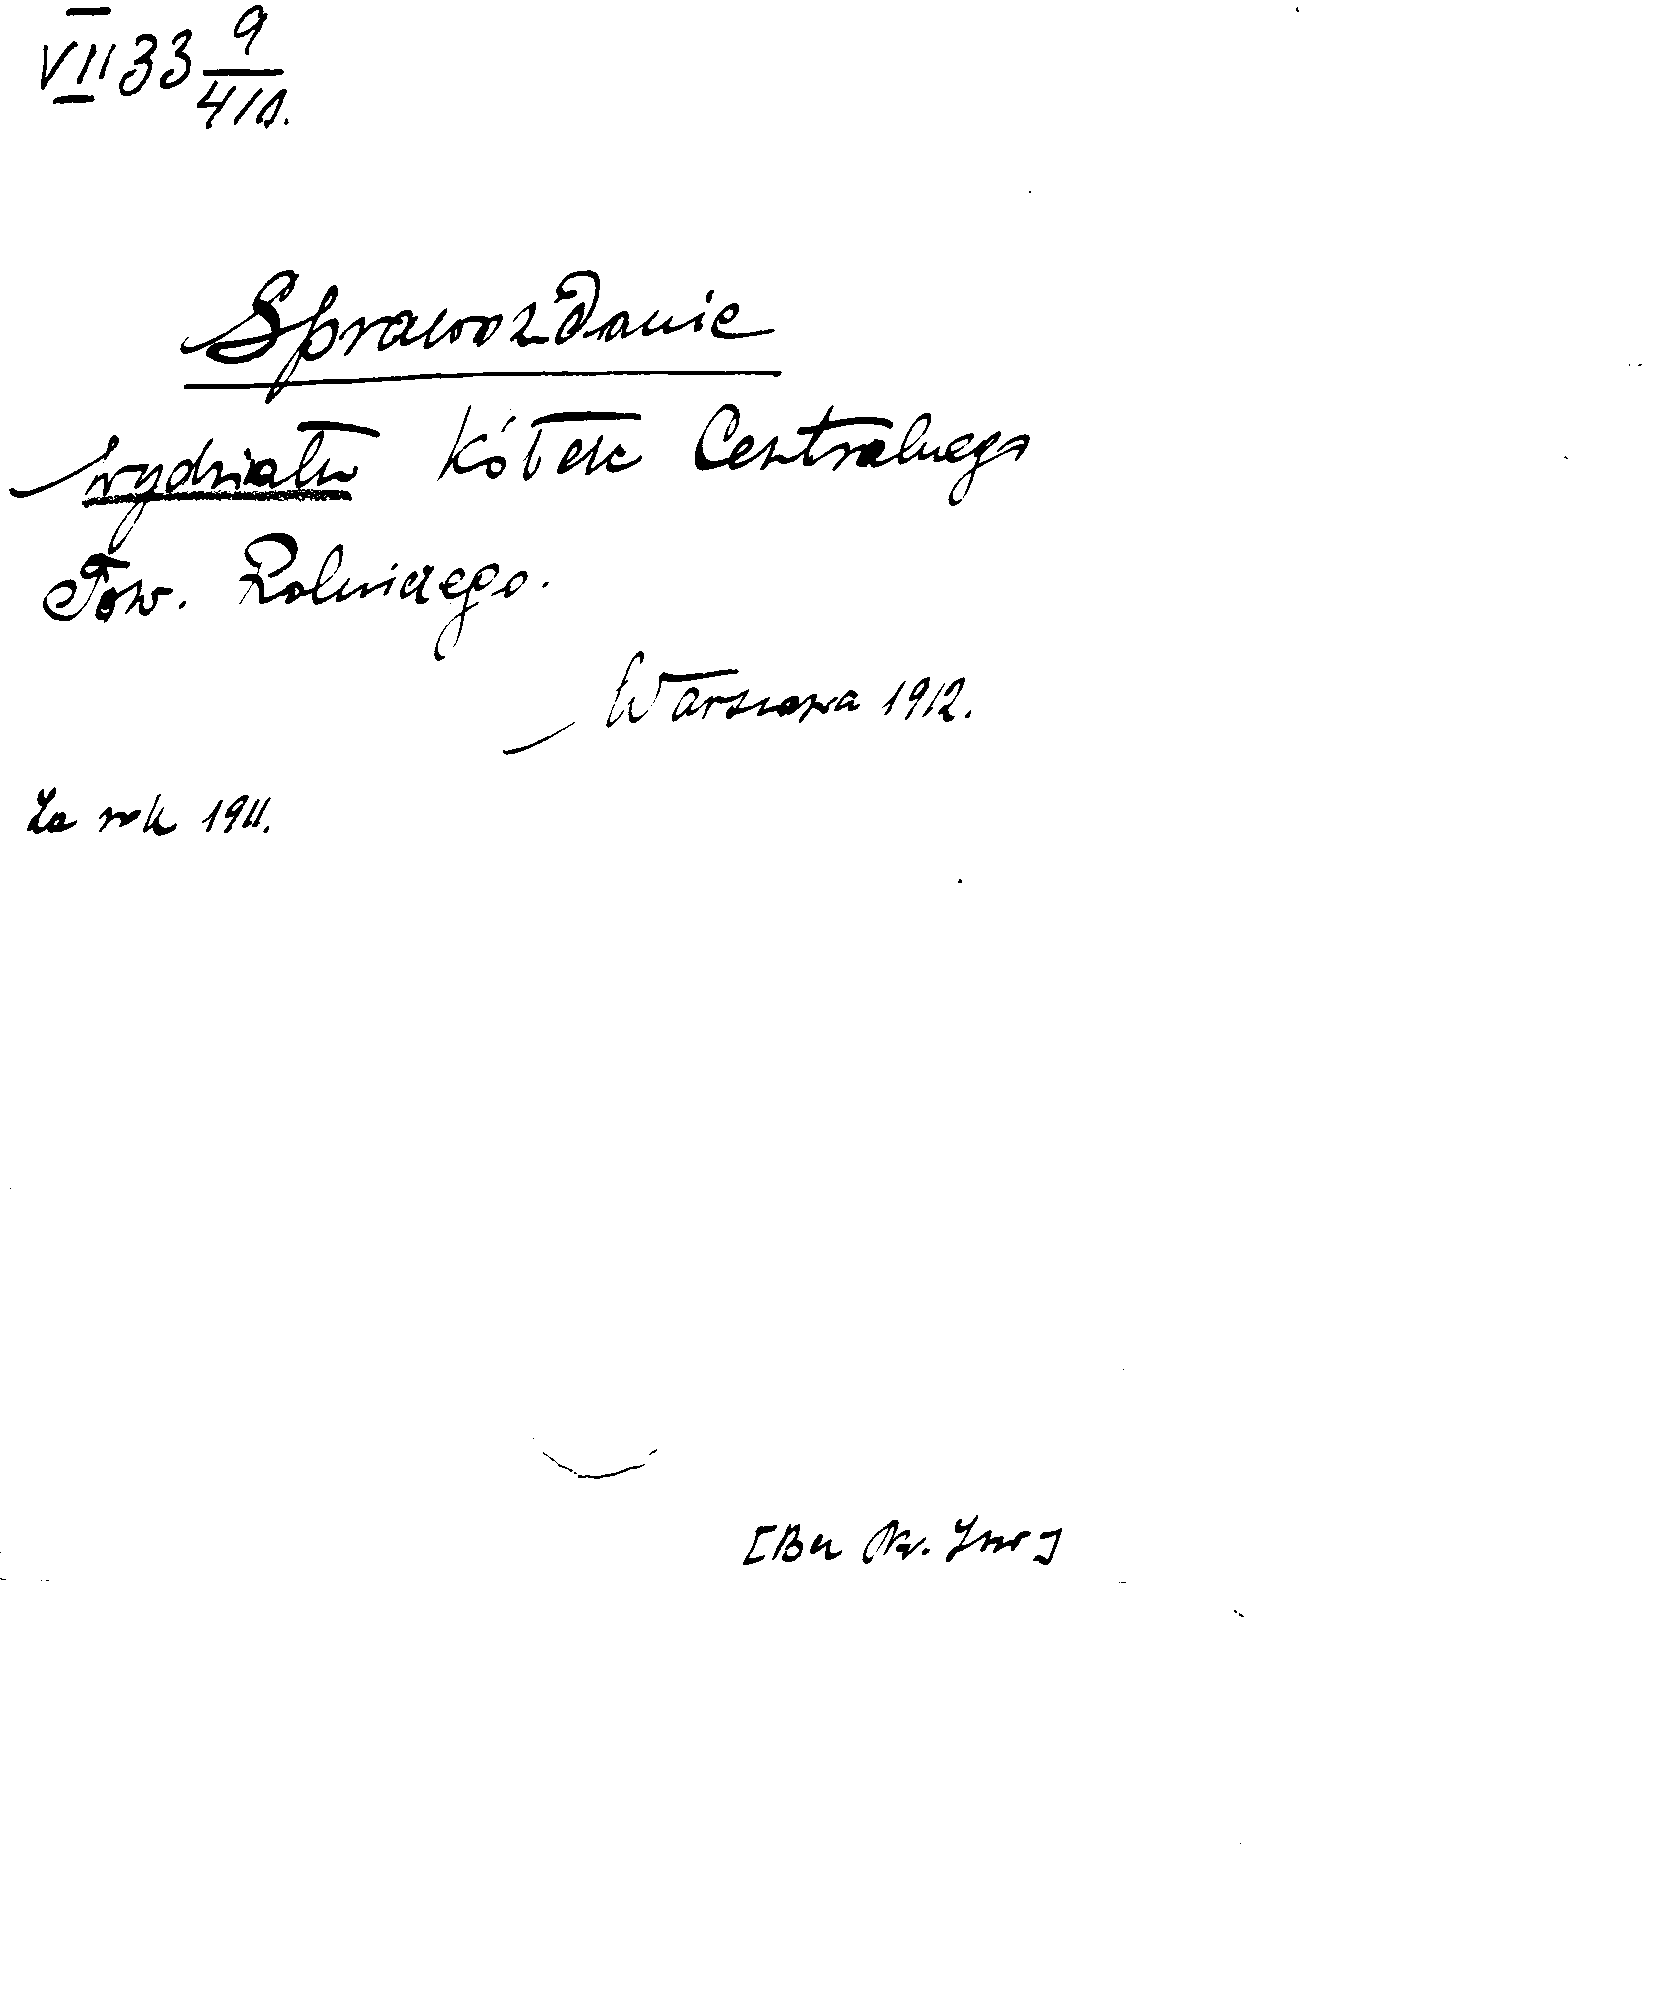 VII 33 9/41a.
Sprawozdanie
wydziału Kółek Centralnego
Tow. Rolniczego.
Warszawa 1912.
Za rok 1911.